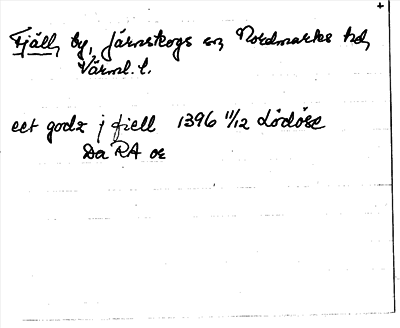 +
Fjäll, by, Järnskogs sn, Nordmarks hd,
Värml. l.
eet godz j fiell 1396 11/12 Lödöse
Da RA or